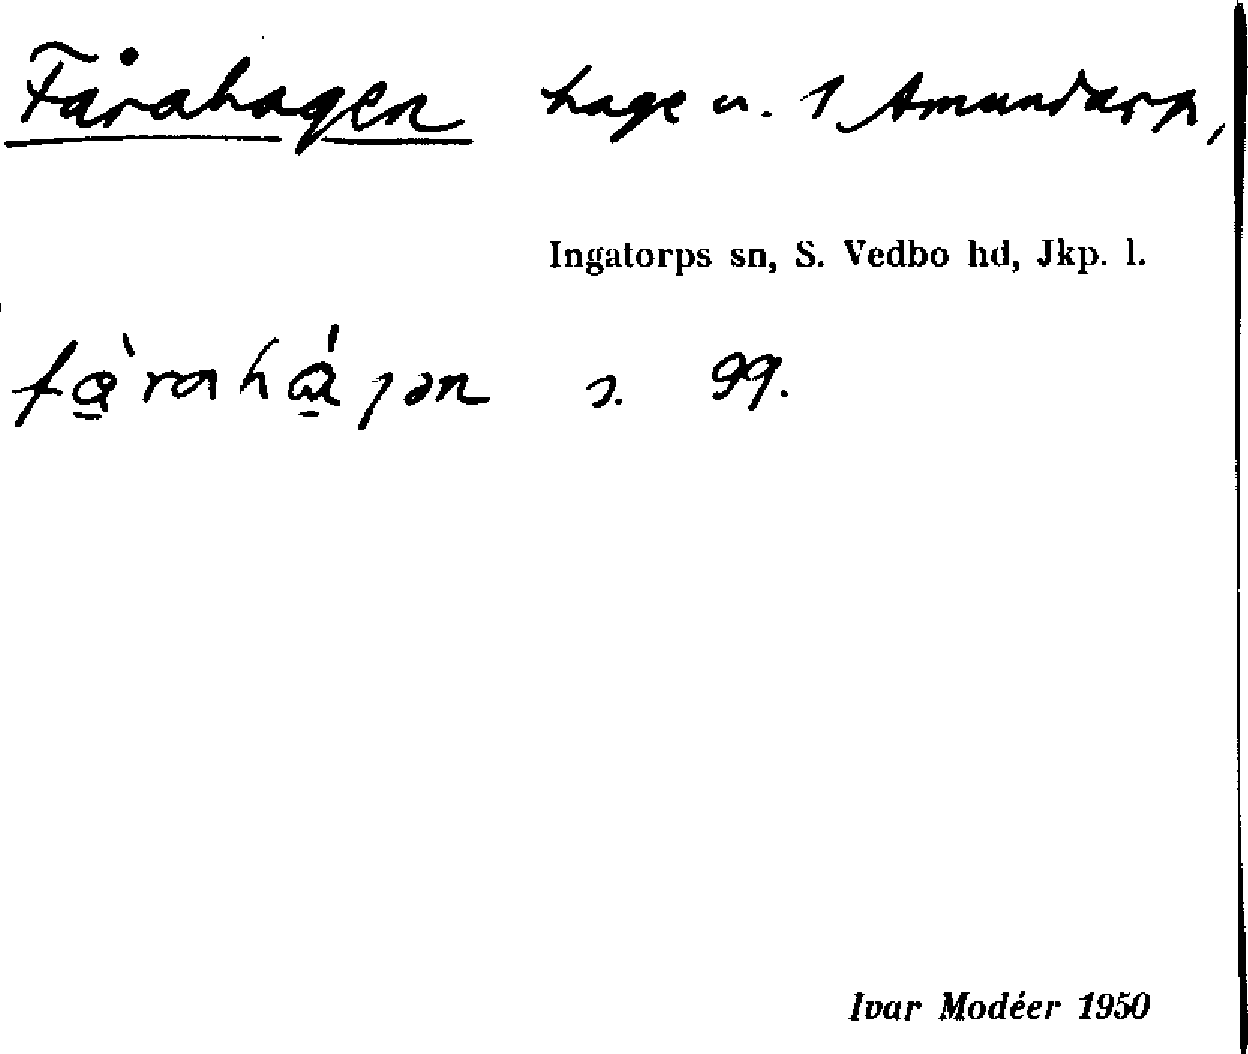 Fårahagen hage u. 1 Amundarp,
Ingatorps sn, S. Vedbo hd, Jkp. l.
s. 99.
Ivar Modéer 1950